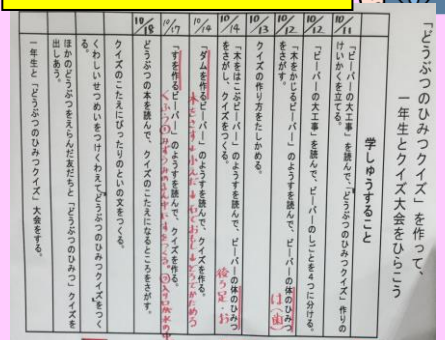 「どうぶつのひみつクイズ」を作って、
一年生とクイズ大会をひらこう
学しゅうすること
10/11
「ビーバーの大工事」を読んで、「どうぶつのひみつクイズ」作りの
けいかくを立てる。
10/12
「ビーバーの大工事」を読んで、ビーバーのしごとを4つに分ける。
10/12
「木をかじるビーバー」のようすを読んで、ビーバーの体のひみつ
をさがす。
は(歯)
10/13
クイズの作り方をたしかめる。
10/14
「木をはこぶビーバー」のようすを読んで、ビーバーの体のひみつ
をさがし、クイズをつくる。
後ろ足・お
10/14
「ダムを作るビーバー」のようすを読んで、クイズを作る。
10/17
「すを作るビーバー」のようすを読んで、クイズを作る。
10/18
どうぶつの本を読んで、クイズのこたえになるところをさがす。
クイズのこたえにぴったりのといの文をつくる。
くわしいせつめいをつけくわえて、どうぶつのひみつクイズをつく
る。
ほかのどうぶつをえらんだ友だちと「どうぶつのひみつ」クイズを
出しあう。
一年生と「どうぶつのひみつクイズ」大会をする。